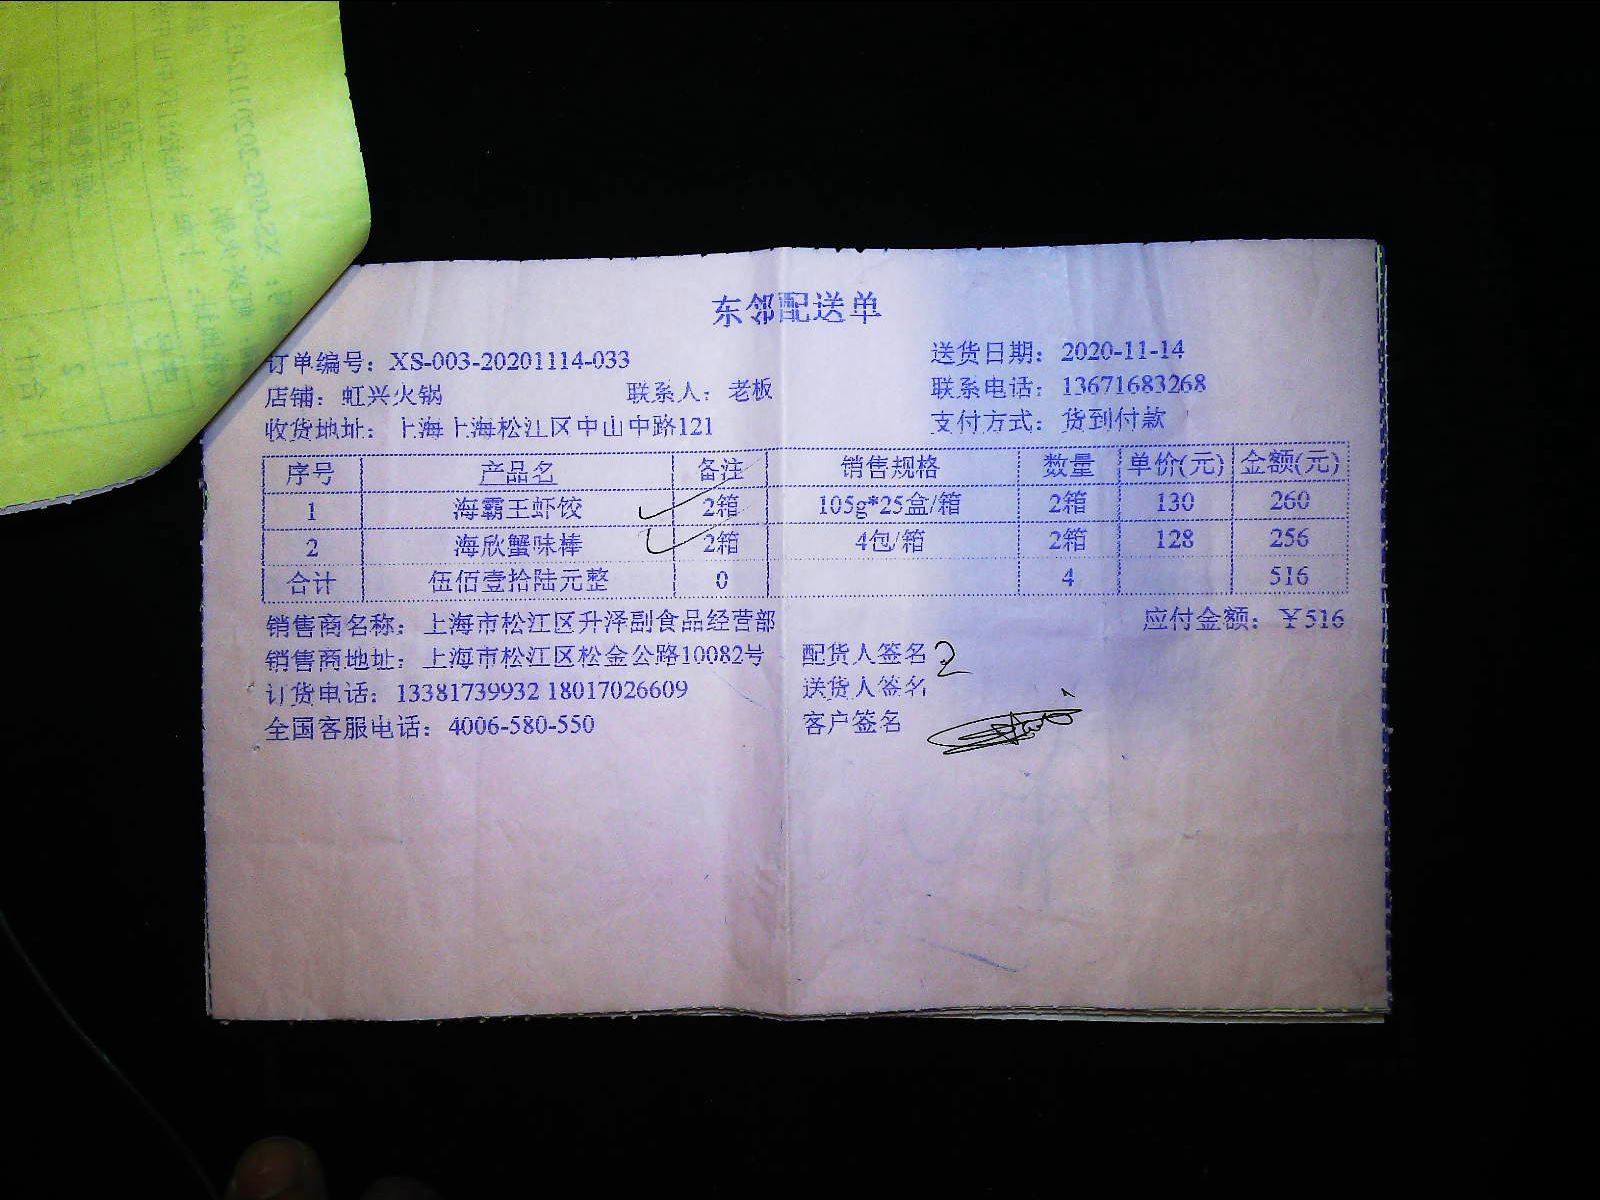 东邻配送单
订单编号：XS-003-20201114-033 送货日期：2020-11-14
店铺：虹兴火锅 联系人：老板 联系电话：13671683268
收货地址：上海上海松江区中山中路121 支付方式：货到付款
序号 产品名 备注 销售规格 数量 单价(元) 金额(元)
1 海霸王虾饺 2箱 105g*25盒/箱 2箱 130 260
2 海欣蟹味棒 2箱 4包/箱 2箱 128 256
合计 伍佰壹拾陆元整 0 4 516
销售商名称：上海市松江区升泽副食品经营部 应付金额：￥516
销售商地址：上海市松江区松金公路10082号 配货人签名 2
订货电话：13381739932 18017026609 送货人签名
全国客服电话：4006-580-550 客户签名